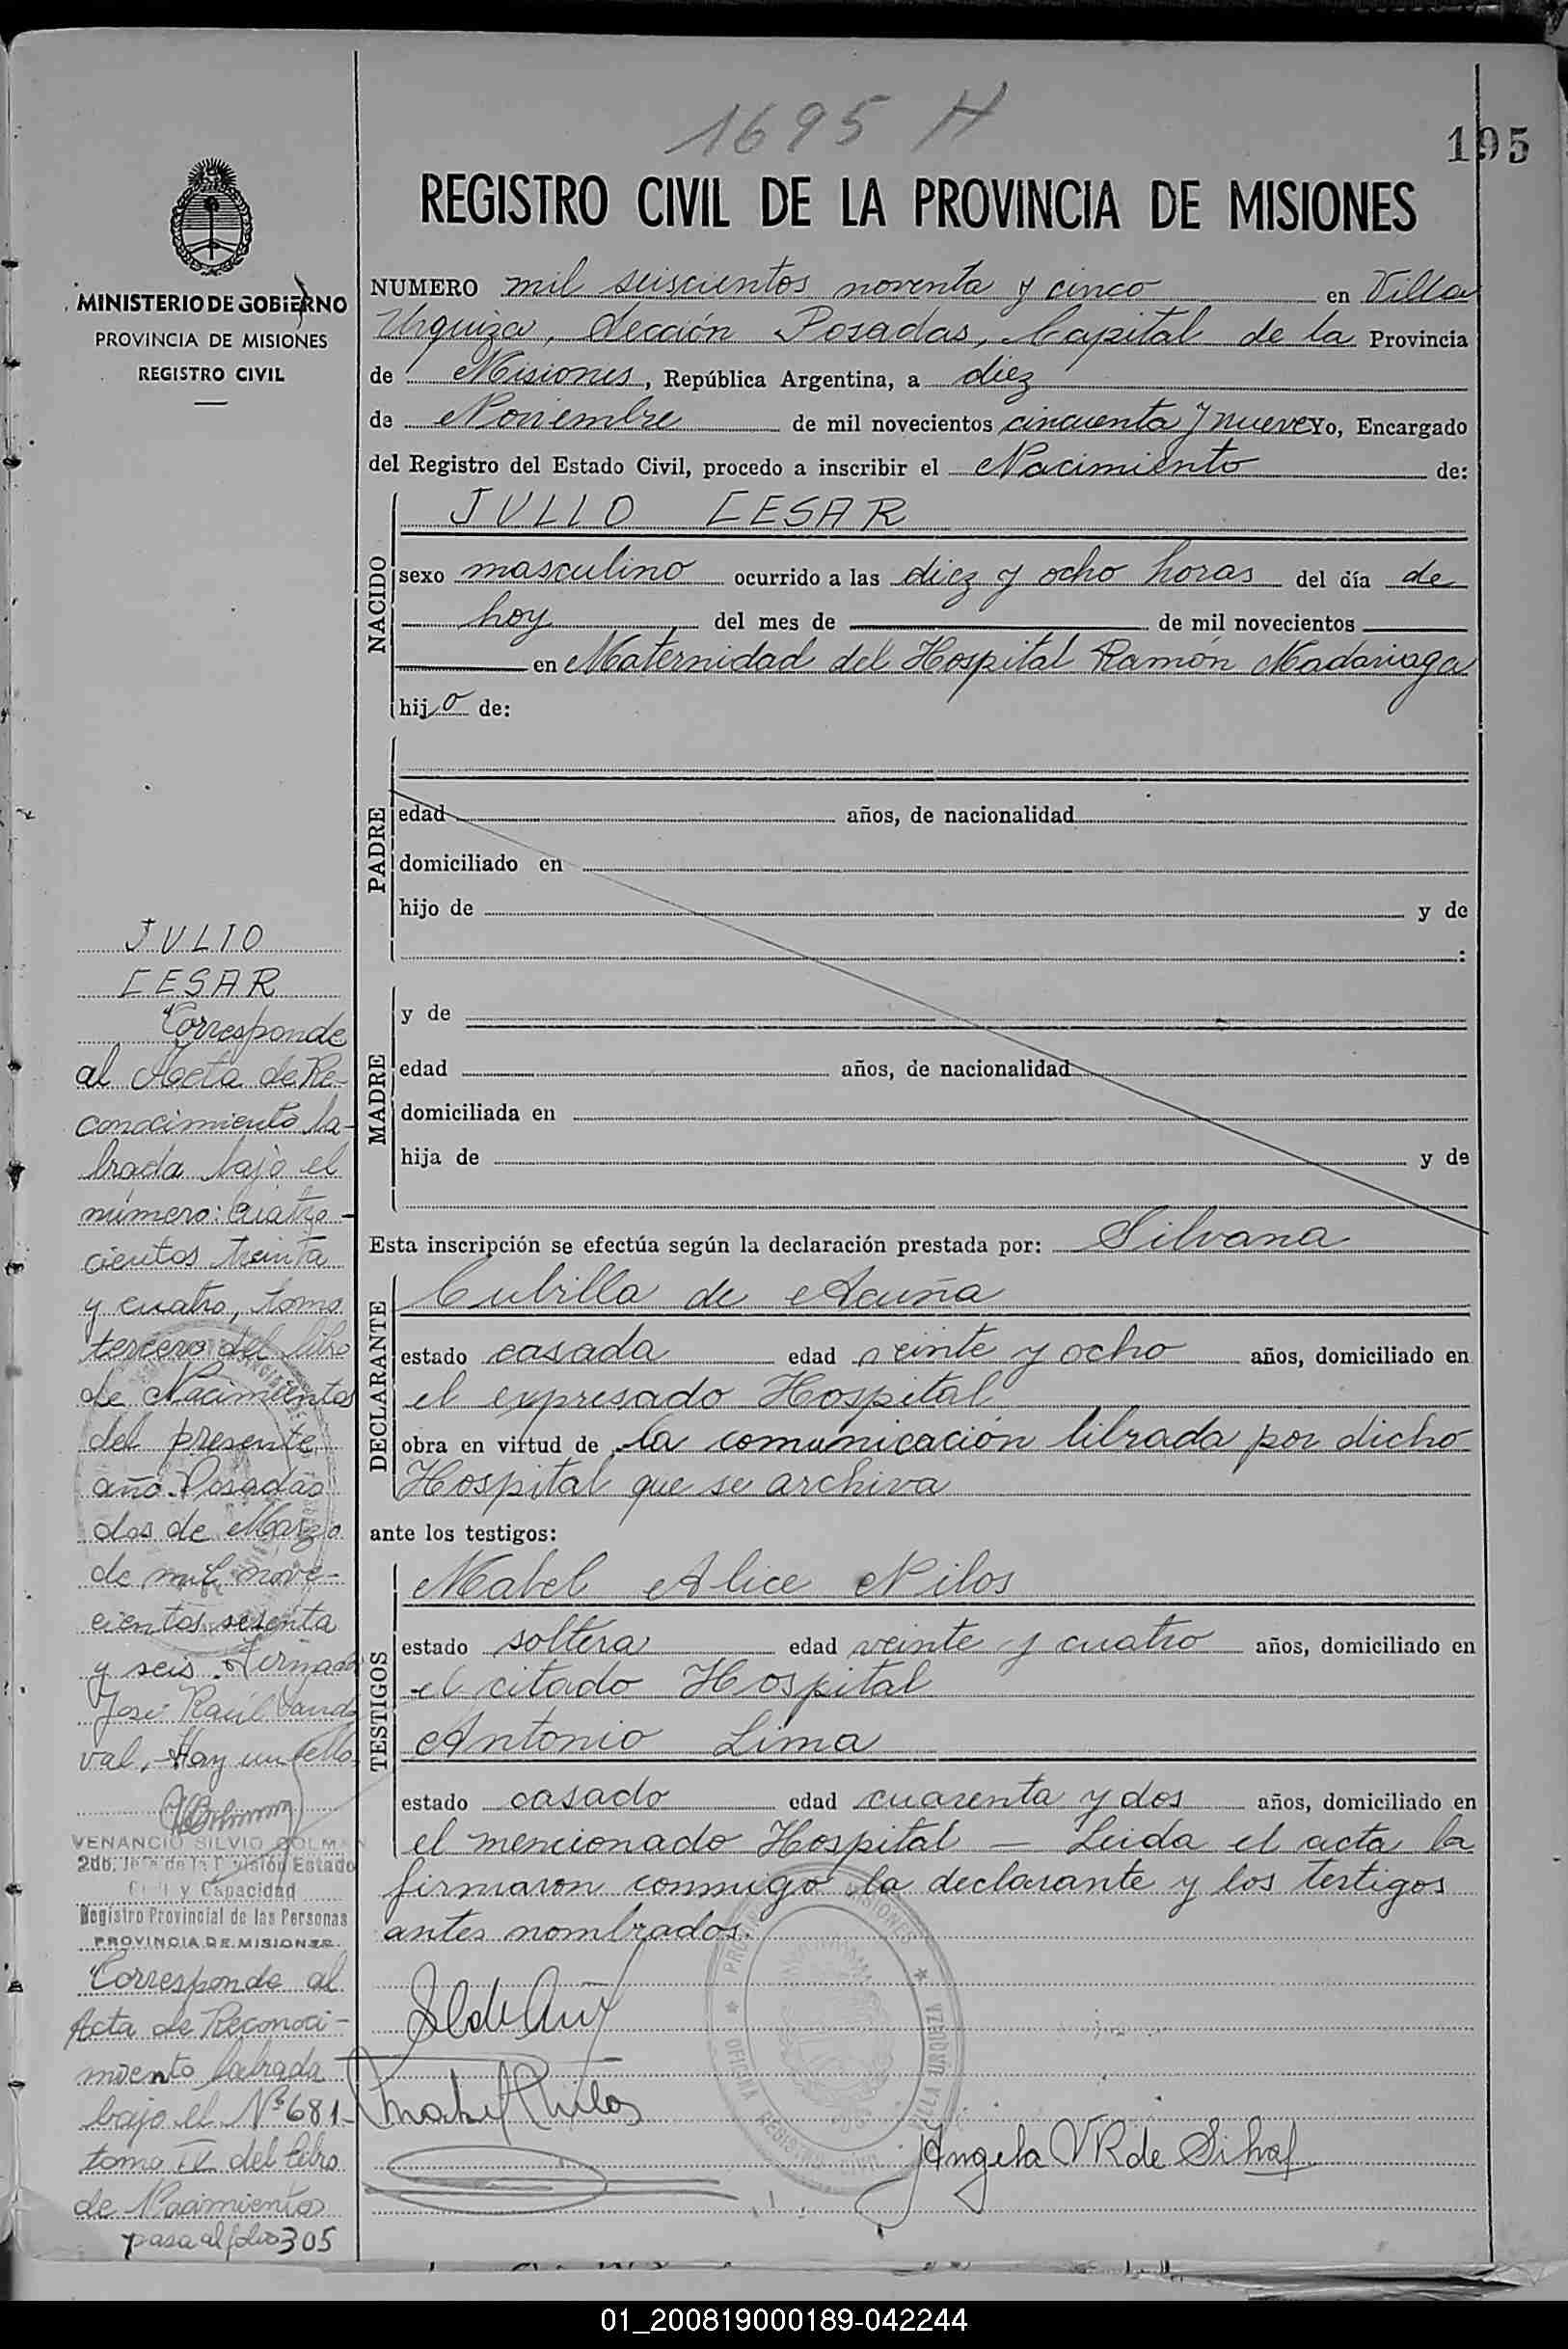 1695 H
195
REGISTRO CIVIL DE LA PROVINCIA DE MISIONES
MINISTERIO DE GOBIERNO
PROVINCIA DE MISIONES
REGISTRO CIVIL
NUMERO mil seiscientos noventa y cinco en Villa
Urquiza, Sección Posadas, Capital de la Provincia
de Misiones, República Argentina, a diez
de Noviembre de mil novecientos cincuenta y nueve Yo, Encargado
del Registro del Estado Civil, procedo a inscribir el Nacimiento de:
NACIDO
JULIO CESAR
sexo masculino ocurrido a las diez y ocho horas del día de
hoy del mes de de mil novecientos
en Maternidad del Hospital Ramón Madariaga
hijo de:
PADRE
edad años, de nacionalidad
domiciliado en
hijo de y de
:
MADRE
y de
edad años, de nacionalidad
domiciliada en
hija de y de
Esta inscripción se efectúa según la declaración prestada por: Silvana
DECLARANTE
Cubilla de Acuña
estado casada edad veinte y ocho años, domiciliado en
el expresado Hospital
obra en virtud de la comunicación librada por dicho
Hospital que se archiva
ante los testigos:
TESTIGOS
Mabel Alice Nilos
estado soltera edad veinte y cuatro años, domiciliado en
el citado Hospital
Antonio Lima
estado casado edad cuarenta y dos años, domiciliado en
el mencionado Hospital — Leida el acta la
firmaron conmigo la declarante y los testigos
antes nombrados.
Angela V R de Sihaf
JULIO
CESAR
Corresponde
al Acta de Re-
conocimiento la-
brada bajo el
número: cuatro-
cientos treinta
y cuatro, tomo
tercero del libro
de Nacimientos
del presente
año. Posadas
dos de Marzo
de mil nove-
cientos sesenta
y seis. Firmado
José Raúl Sando
val. Hay un sello
VENANCIO SILVIO COLMAN
2do. Jefe de la División Estado
Civil y Capacidad
Registro Provincial de las Personas
PROVINCIA DE MISIONES
Corresponde al
Acta de Reconoci-
miento labrada
bajo el Nº 681-
tomo IV del libro
de Nacimientos
pasa al folio 305
01_200819000189-042244